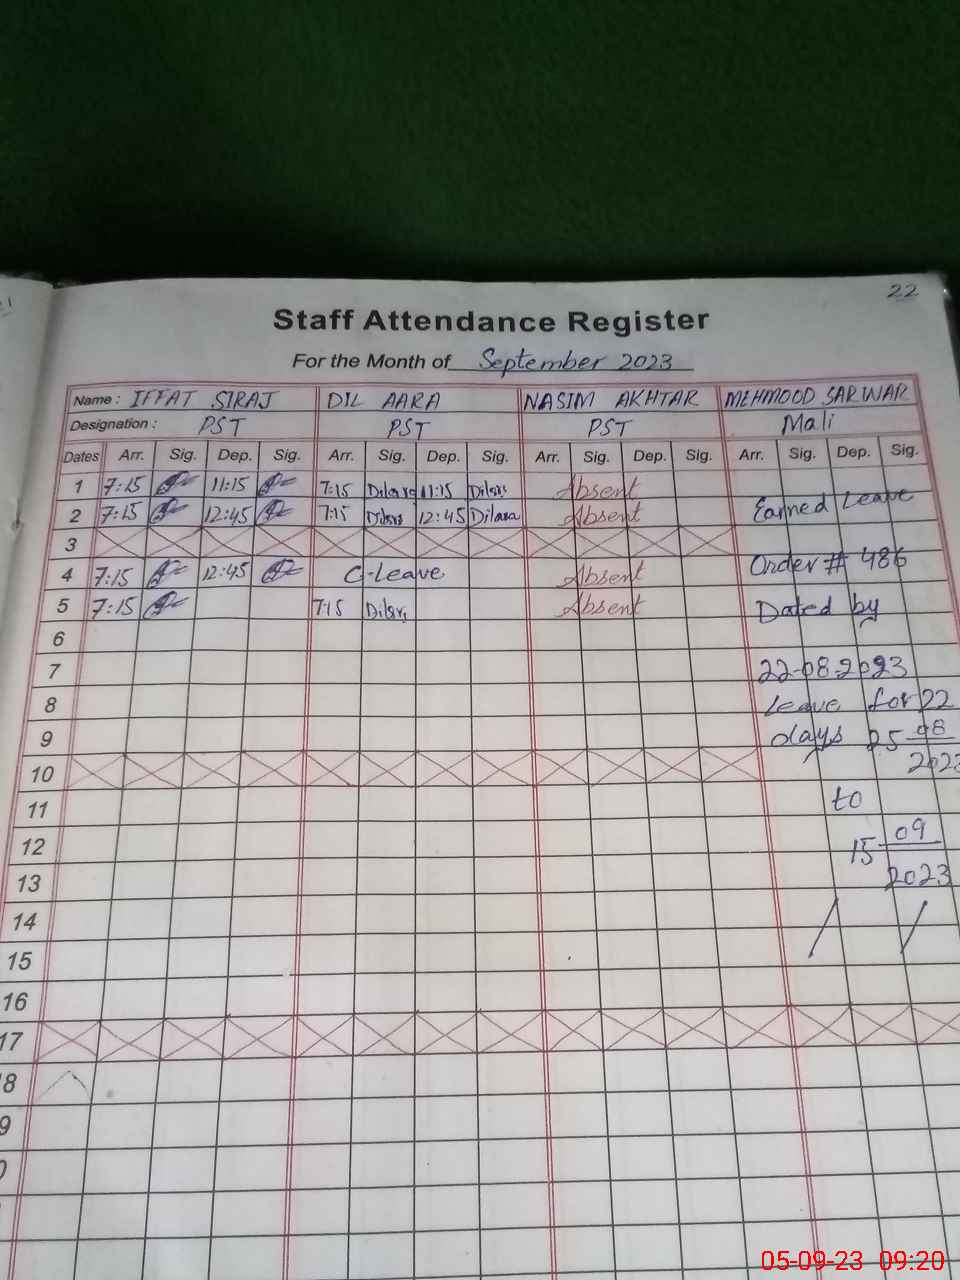 22
Staff Attendance Register
For the Month of September 2023
Name : IFFAT SIRAJ DIL AARA NASIM AKHTAR MEHMOOD SARWAR
Designation : PST PST PST Mali
Dates Arr. Sig. Dep. Sig. Arr. Sig. Dep. Sig. Arr. Sig. Dep. Sig. Arr. Sig. Dep. Sig.
1 7:15 11:15 7:15 11:15 Absent
2 7:15 12:45 7:15 12:45 Dilara Absent Earned Leave
3
4 7:15 12:45 C-Leave Absent Order # 486
5 7:15 7:15 Absent Dated by
6
7 22-08-2023
8 Leave for 22
9 days 25 08
10 2023
11 to
12 15 09
13 2023
14
15
16
17
8
9
05-09-23 09:20